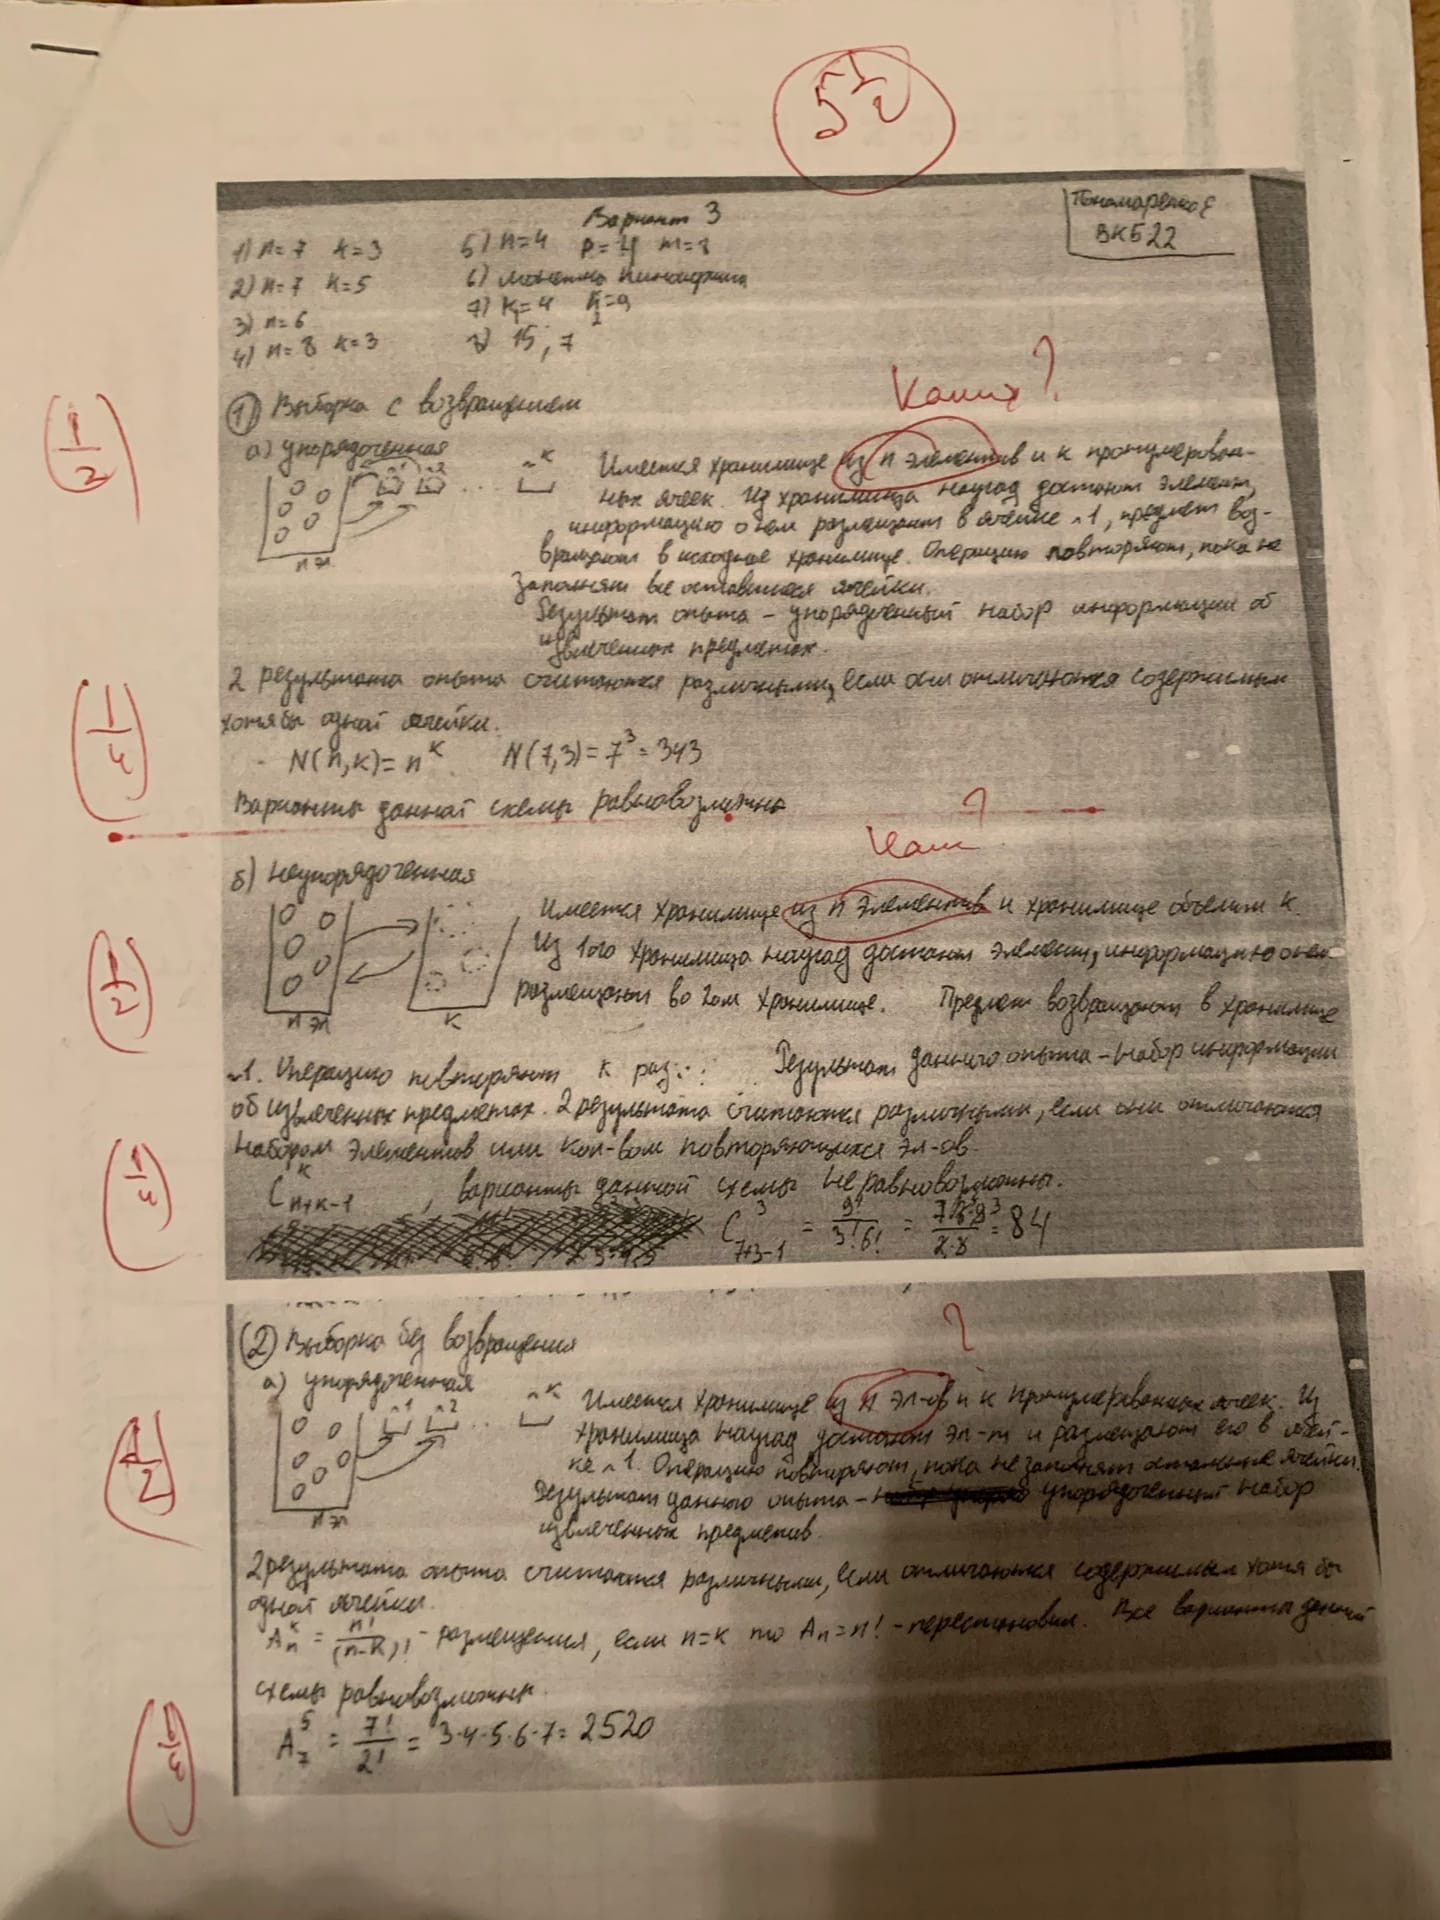 5 1/2
Вариант 3
Пономаренко Е
ВКБ22
1) n=7 k=3
2) n=7 k=5
3) n=6
4) n=8 k=3
5) n=4
6)
7) k₁=4 k₂=9
15, 7
Каких?
1/2
① Выборка с возвращением
а) упорядоченная
n эл
Имеется хранилище из n элементов и k пронумерован-
ных ячеек. Из хранилища наугад достают элемент,
информацию о нем размещают в ячейке №1, предмет воз-
вращают в исходное хранилище. Операцию повторяют, пока не
заполнят все оставшиеся ячейки.
Результат опыта - упорядоченный набор информации об
извлеченных предметах.
1/4
2 результата опыта считаются различными, если они отличаются содержимым
хотя бы одной ячейки.
N(n,k)=n^k N(7,3)=7³=343
Варианты данной схемы равновозможны
?
1/2
б) неупорядоченная
n эл
k
Имеется хранилище из n элементов и хранилище объемом k.
Из 1ого хранилища наугад достают элемент, информацию о нем
размещают во 2ом хранилище. Предмет возвращают в хранилище
№1. Операцию повторяют k раз. Результат данного опыта - набор информации
об извлеченных предметах. 2 результата считаются различными, если они отличаются
набором элементов или кол-вом повторяющихся эл-ов.
1/4
C^k_{n+k-1}, варианты данной схемы не равновозможны.
C³_{7+3-1} = 9!/(3!6!) = = 84
② Выборка без возвращения
?
а) упорядоченная
№1 №2 .. №k
n эл
1/2
Имеется хранилище из n эл-ов и k пронумерованных ячеек. Из
хранилища наугад достают эл-т и размещают его в ячей-
ке №1. Операцию повторяют, пока не заполнят остальные ячейки.
Результат данного опыта - упорядоченный набор
извлеченных предметов.
2 результата опыта считаются различными, если отличаются содержимым хотя бы
одной ячейки.
A^k_n = n!/(n-k)! - размещения, если n=k то A_n=n! - перестановки. Все варианты данной
схемы равновозможны.
1/4
A⁵₇ = 7!/2! = 3·4·5·6·7 = 2520